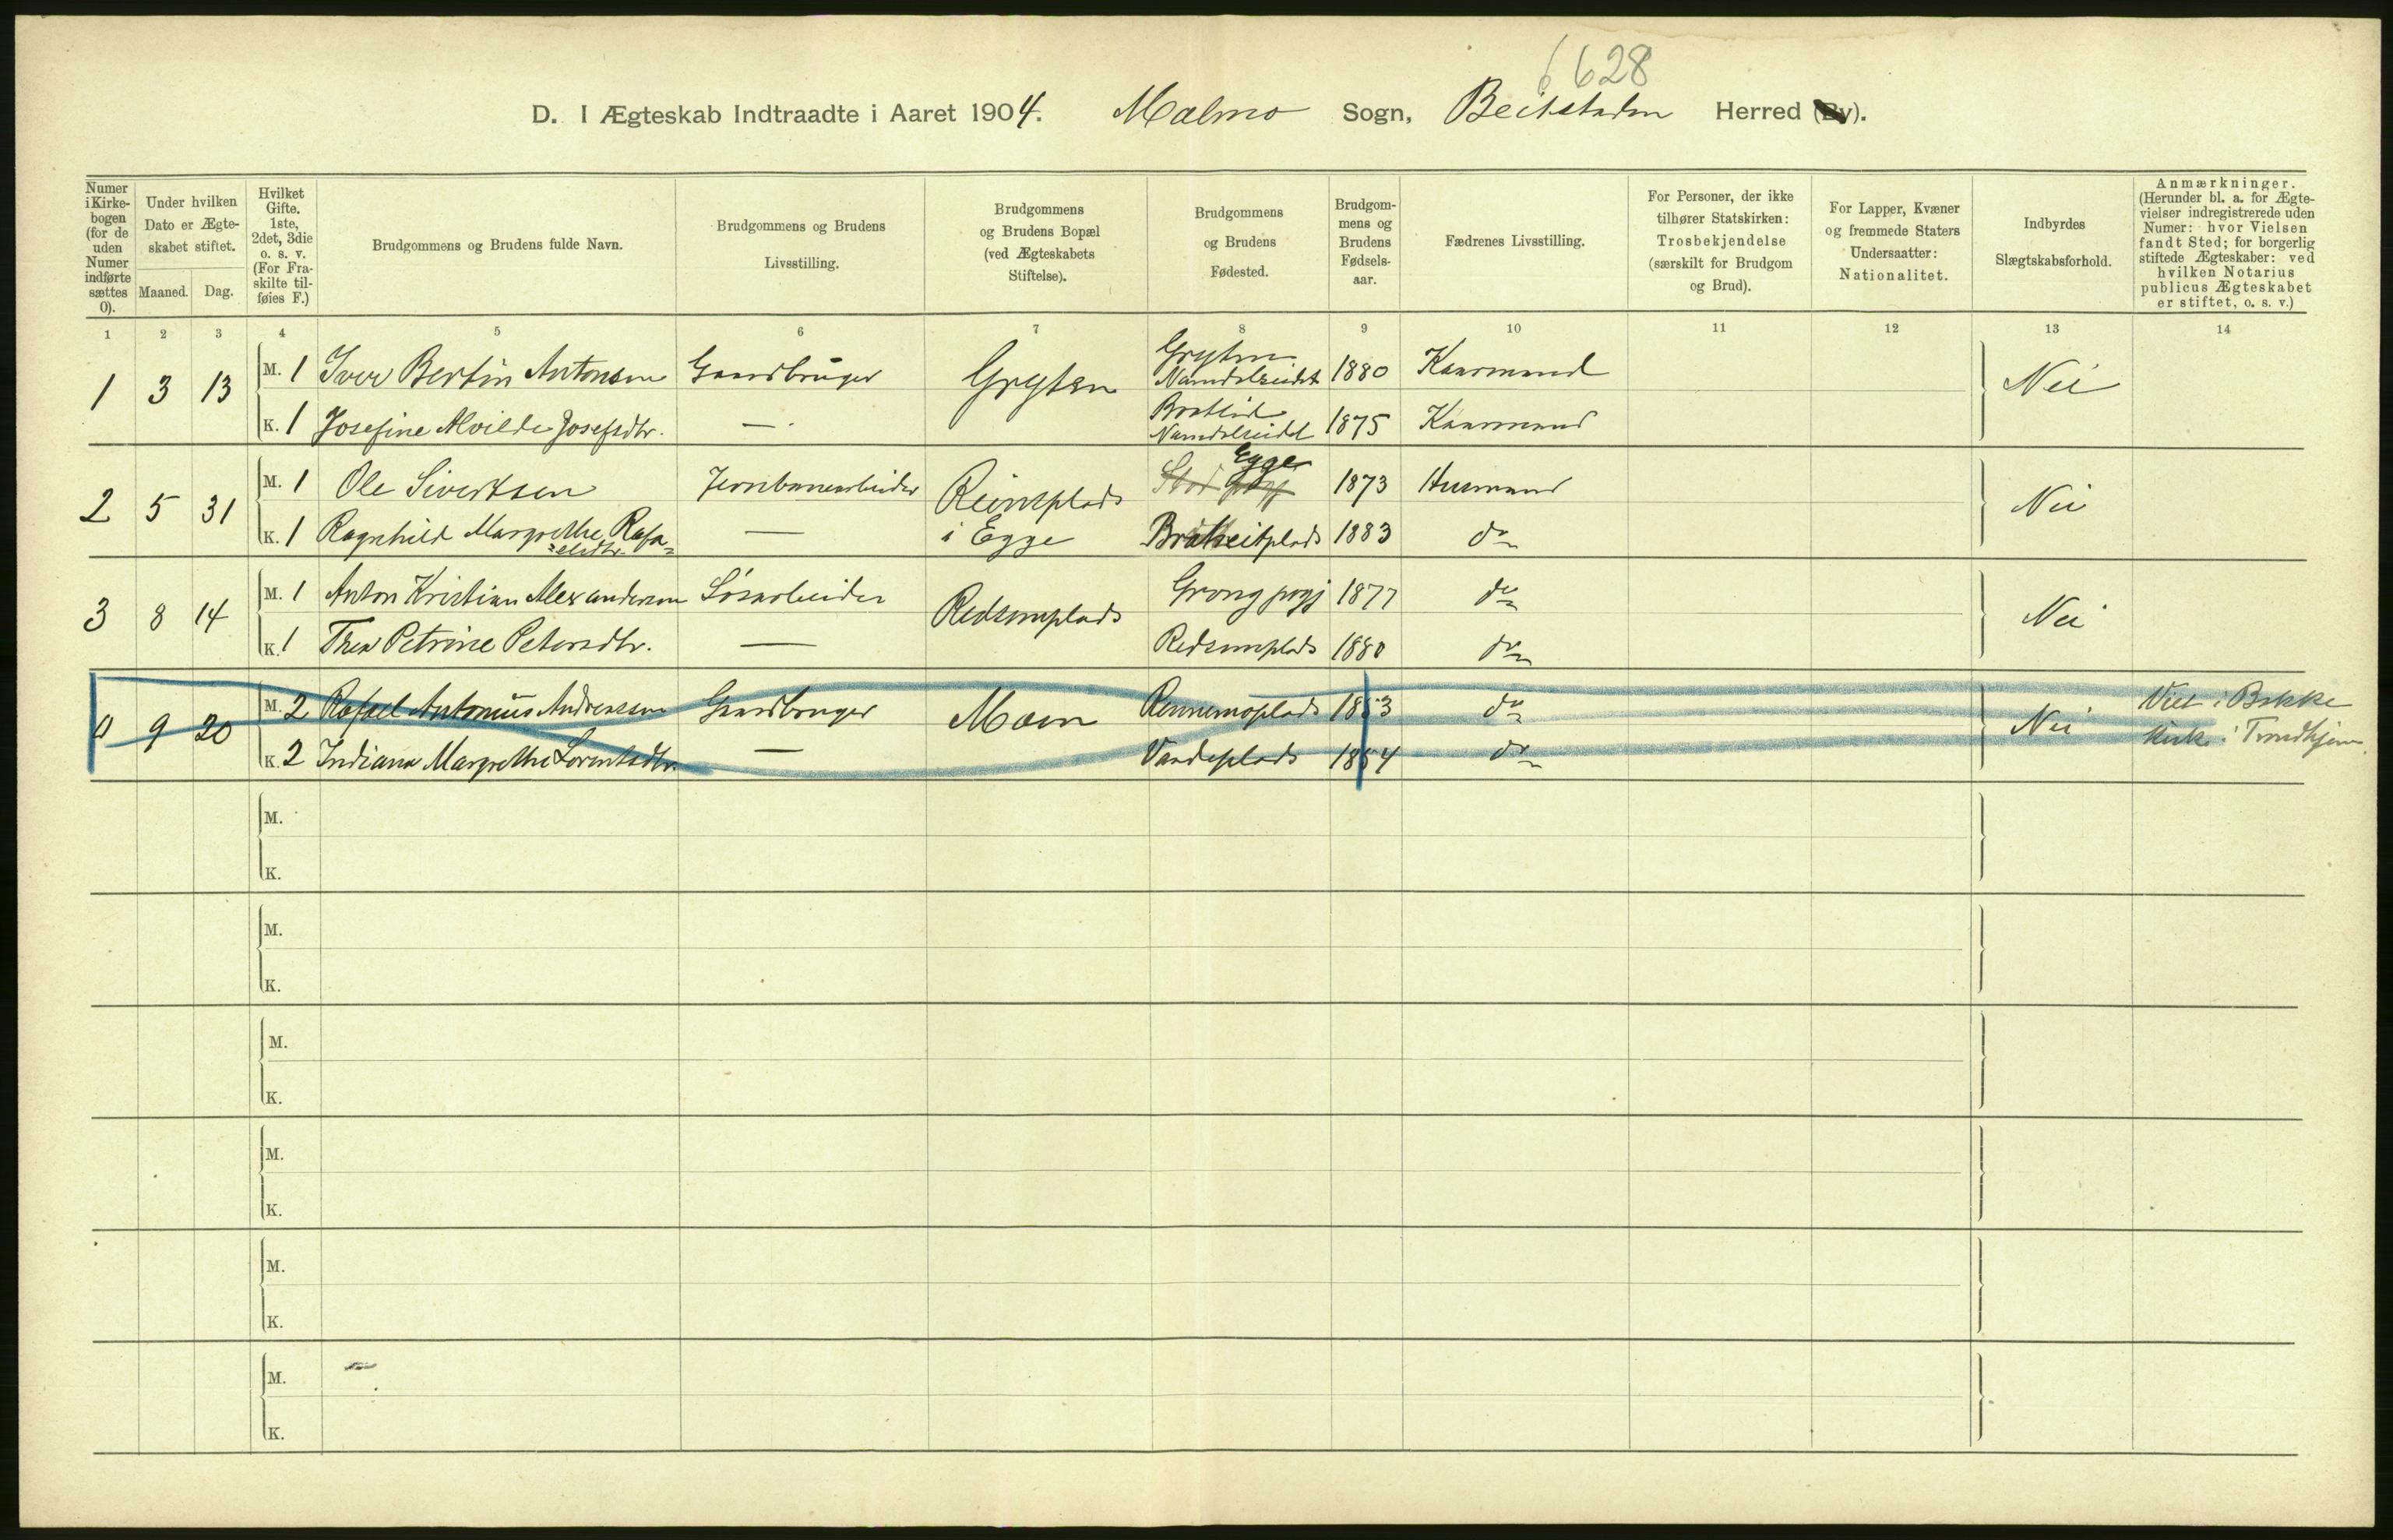 6628
D. I Ægteskab Indtraadte i Aaret 1904. Malmo Sogn, Beitstaden Herred (By).
Numer i Kirkebogen (for de uden Numer indførte sættes 0).
Under hvilken Dato er Ægteskabet stiftet.
Maaned. Dag.
Hvilket Gifte. 1ste, 2det, 3die o. s. v. (For Fraskilte tilføies F.)
Brudgommens og Brudens fulde Navn.
Brudgommens og Brudens Livsstilling.
Brudgommens og Brudens Bopæl (ved Ægteskabets Stiftelse).
Brudgommens og Brudens Fødested.
Brudgommens og Brudens Fødselsaar.
Fædrenes Livsstilling.
For Personer, der ikke tilhører Statskirken: Trosbekjendelse (særskilt for Brudgom og Brud).
For Lapper, Kvæner og fremmede Staters Undersaatter: Nationalitet.
Indbyrdes Slægtskabsforhold.
Anmærkninger. (Herunder bl. a. for Ægtevielser indregistrerede uden Numer: hvor Vielsen fandt Sted; for borgerlig stiftede Ægteskaber: ved hvilken Notarius publicus Ægteskabet er stiftet, o. s. v.)
1 2 3 4 5 6 7 8 9 10 11 12 13 14
1 3 13 M. 1 Iver Bertin Antonsen Gaardbruger Gryten Gryten Namdalseidet 1880 Kaarmand Nei
K. 1 Josefine Alvilde Josefsdtr. — Namdalseidet 1875 Kaarmand
2 5 31 M. 1 Ole Sivertsen Jernbanearbeider Reinsplads i Egge Stod pgj Egge 1873 Husmand Nei
K. 1 Ragnhild Margrethe Rafa=elsdtr. — Bratreitplads 1883 do
3 8 14 M. 1 Anton Kristian Alexandersen Løsarbeider Redsemplads Grong pgj 1877 do Nei
K. 1 Thea Petrine Petersdtr. — Redsemplads 1880 do
0 9 20 M. 2 Rafael Antonius Andreassen Gaardbruger Moen Rennemoplads 1853 do Nei Viet i Bakke Kirke i Trondhjem.
K. 2 Indiana Margrethe Lorentsdtr. — 1854 do
M.
K.
M.
K.
M.
K.
M.
K.
M.
K.
M.
K.